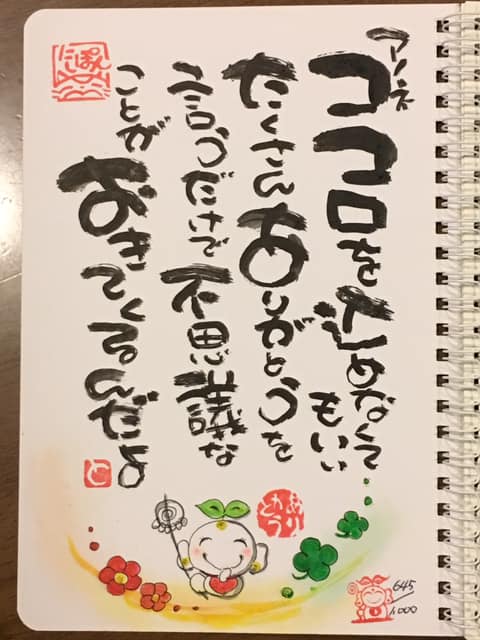 アノネ
ココロを込めなくてもいい
たくさんありがとうを
言うだけで不思議な
ことがおきてくるんだよ
645
1000